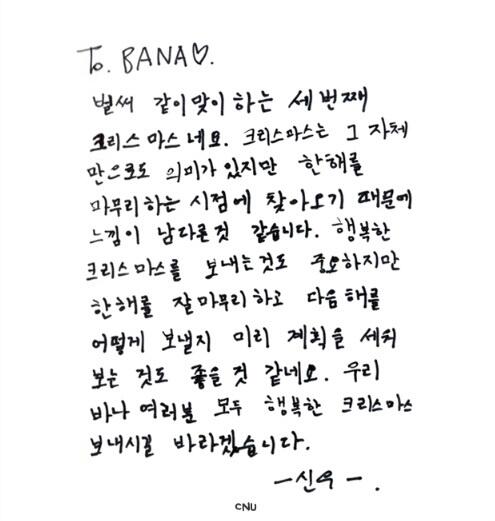 To. BANA♡.
벌써 같이 맞이 하는 세 번째
크리스마스네요. 크리스마스는 그 자체
만으로도 의미가 있지만 한해를
마무리하는 시점에 찾아오기 때문에
느낌이 남다른것 같습니다. 행복한
크리스마스를 보내는것도 중요하지만
한해를 잘 마무리하고 다음해를
어떻게 보낼지 미리 계획을 세워
보는 것도 좋을 것 같네요. 우리
바나 여러분 모두 행복한 크리스마스
보내시길 바라겠습니다.
-신우-.
CNU